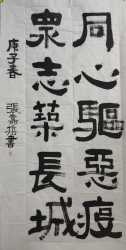 同心驅惡疫
衆志築長城
庚子春
張喬根書